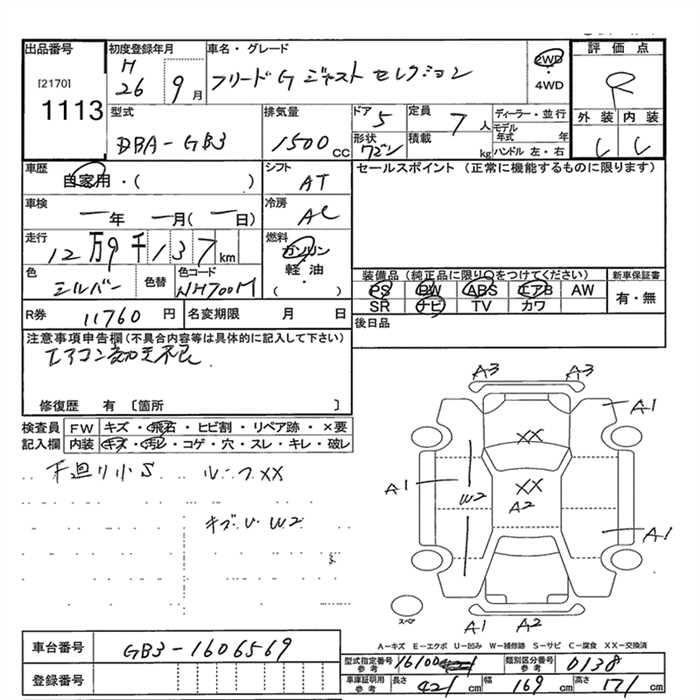 出品番号
[2170]
1113
初度登録年月
H
26 9月
車名・グレード
フリードG ジャスト セレクション
2WD
4WD
評価点
R
外装 内装
型式
DBA-GB3
排気量
1500 CC
ドア 5
形状
ワゴン
定員 7人
積載 kg
ディーラー・並行
モデル年式 年
ハンドル 左・右
車歴
自家用・( )
シフト
AT
セールスポイント (正常に機能するものに限ります)
車検
ー年 ー月(ー日)
冷房
AC
走行
12万9千137km
燃料
ガソリン
軽油
( )
色
シルバー
色替
色コード
NH700M
装備品(純正品に限り○をつけてください)
新車保証書
PS PW ABS エアB AW
SR ナビ TV カワ
有・無
R券 11760円
名変期限 月 日
後日品
注意事項申告欄(不具合内容等は具体的に記入して下さい)
エアコン効き不良
修復歴 有 〔箇所 〕
検査員
記入欄
FW キズ・飛石・ヒビ割・リペア跡・×要
内装 キズ・汚レ・コゲ・穴・スレ・キレ・破レ
下廻り小S ルーフXX
キズU W2
A3 A3
A1
XX
A1 W2 XX
A2
A1
スペア
A1 A2
A-キズ E-エクボ U-凹み W-補修跡 S-サビ C-腐食 XX-交換済
車台番号 GB3-1606569
登録番号
型式指定番号 参考 16100
類別区分番号 参考 0138
車庫証明用 参考 長さ 421cm 幅 169cm 高さ 171cm